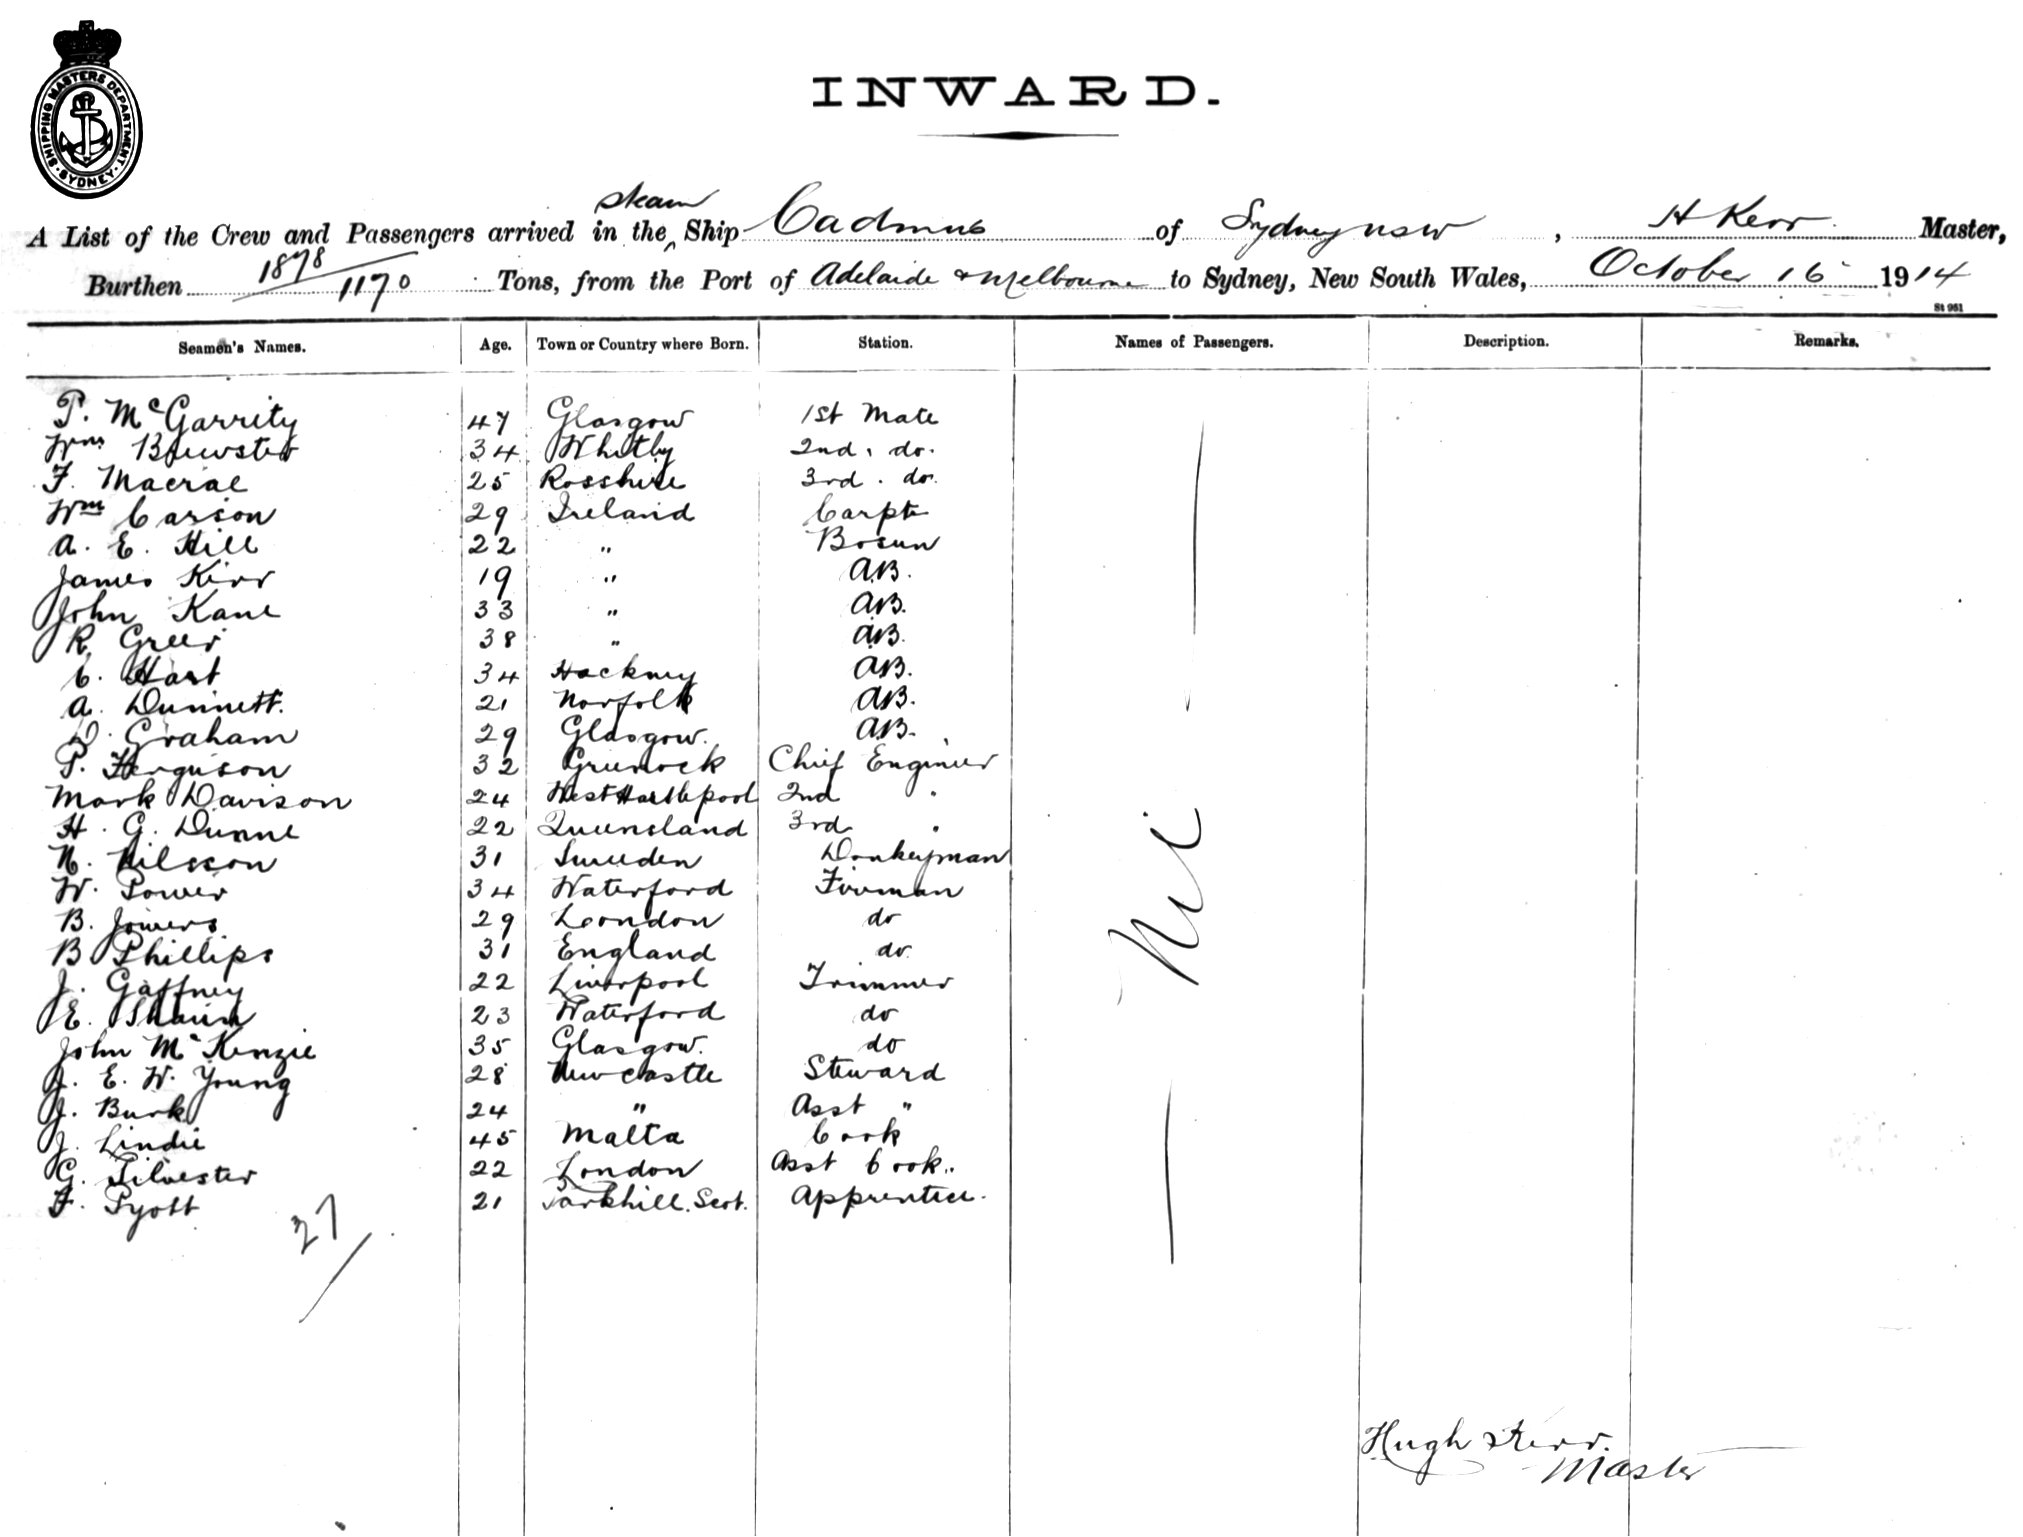 SHIPPING MASTERS DEPARTMENT
SYDNEY
INWARD.
steam
A List of the Crew and Passengers arrived in the ^ Ship Cadmus of Sydney NSW, H Kerr. Master,
Burthen 1878/1170 Tons, from the Port of Adelaide & Melbourne to Sydney, New South Wales, October 16 1914
St 951
Seamen's Names. Age. Town or Country where Born. Station. Names of Passengers. Description. Remarks.
P. McGarrity 47 Glasgow 1st Mate
Wm Brewster 34 Whitby 2nd. do.
F. Macrae 25 Rosshire 3rd. do.
Wm Carson 29 Ireland Carptr
A. E. Hill 22 " Bosun
James Kirr 19 " AB.
John Kane 33 " AB.
R Greer 38 " AB.
C. Hart 34 Hackney AB.
A. Dunnett. 21 Norfolk AB.
D. Graham 29 Glasgow. AB.
P. Ferguson 32 Greenock Chief Engineer
Mark Davison 24 West Hartlepool 2nd "
H. G. Dunne 22 Queensland 3rd "
N. Nilsson 31 Sweeden Donkeyman
W. Power 34 Waterford Fireman
B. Jowers 29 London do
B Phillips 31 England do.
J. Gaffney 22 Liverpool Trimmer
E. 23 Waterford do
John McKenzie 35 Glasgow. do
J. E. W. Young 28 Newcastle Steward
J. Burk 24 " Asst "
J. Lindie 45 Malta Cook
G. Silvester 22 London Asst Cook..
F. Pyott 21 Parkhill. Scot. Apprentice.
27/
Nil
Hugh Kerr.
Master